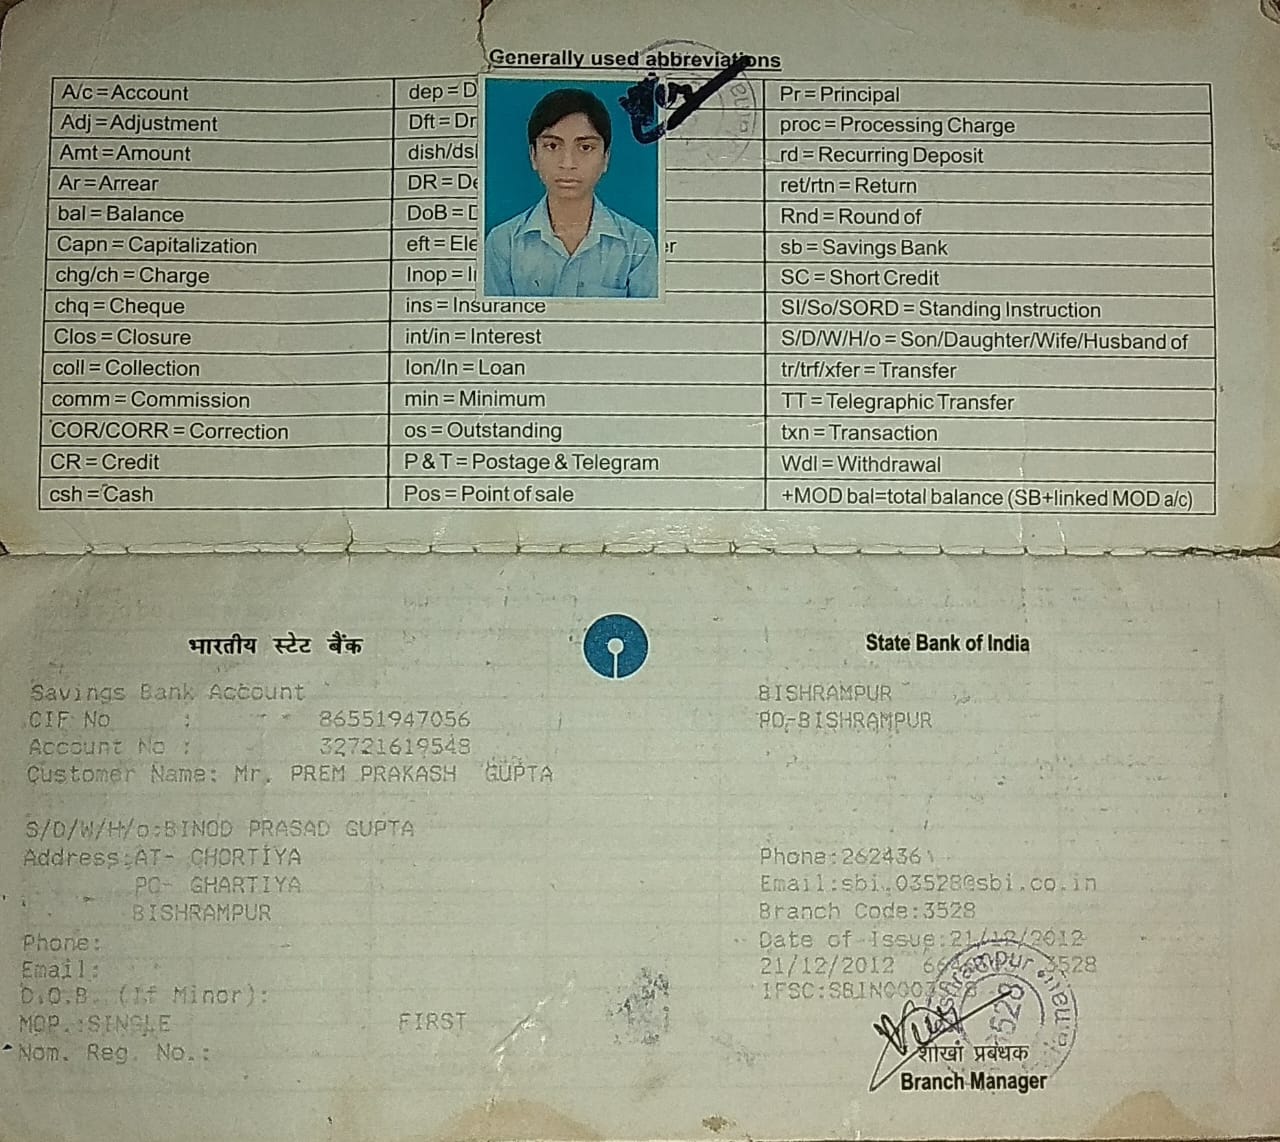 Generally used abbreviations
A/c = Account
Adj = Adjustment
Amt = Amount
Ar = Arrear
bal = Balance
Capn = Capitalization
chg/ch = Charge
chq = Cheque
Clos = Closure
coll = Collection
comm = Commission
COR/CORR = Correction
CR = Credit
csh = Cash
dep =
Dft =
DR =
DoB =
eft =
Inop =
ins = Insurance
int/in = Interest
lon/ln = Loan
min = Minimum
os = Outstanding
P & T = Postage & Telegram
Pos = Point of sale
Pr = Principal
proc = Processing Charge
rd = Recurring Deposit
ret/rtn = Return
Rnd = Round of
sb = Savings Bank
SC = Short Credit
SI/So/SORD = Standing Instruction
S/D/W/H/o = Son/Daughter/Wife/Husband of
tr/trf/xfer = Transfer
TT = Telegraphic Transfer
txn = Transaction
Wdl = Withdrawal
+MOD bal=total balance (SB+linked MOD a/c)
भारतीय स्टेट बैंक
State Bank of India
Savings Bank Account
CIF No : 86551947056
Account No : 32721619548
Customer Name: Mr. PREM PRAKASH GUPTA
S/D/W/H/o:BINOD PRASAD GUPTA
Address:AT- CHORTIYA
PO- GHARTIYA
BISHRAMPUR
Phone:
Email:
D.O.B. (If Minor):
MOP.:SINGLE FIRST
Nom. Reg. No.:
BISHRAMPUR
PO-BISHRAMPUR
Phone:262436
Email:sbi.03528@sbi.co.in
Branch Code:3528
Date of Issue:21/12/2012
21/12/2012 3528
शाखा प्रबंधक
Branch Manager